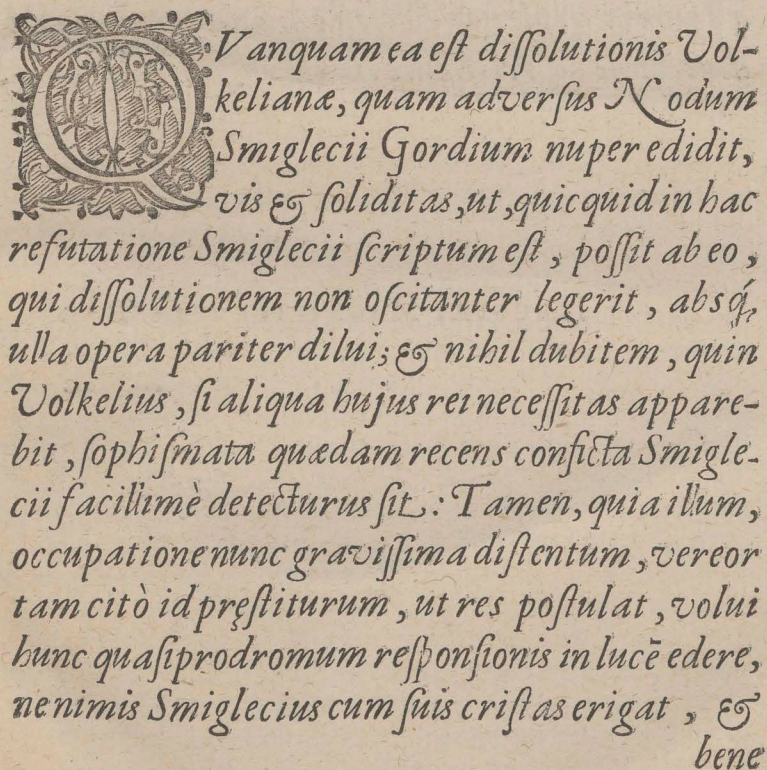 QVanquam ea est dissolutionis Vol-
kelianæ, quam adversus Nodum
Smiglecii Gordium nuper edidit,
vis & soliditas, ut, quicquid in hac
refutatione Smiglecii scriptum est, possit ab eo,
qui dissolutionem non oscitanter legerit, absq́;
ulla opera pariter dilui; & nihil dubitem, quin
Volkelius, si aliqua hujus rei necessitas appare-
bit, sophismata quædam recens conficta Smigle-
cii facillimè detecturus sit: Tamen, quia illum,
occupatione nunc gravissima distentum, vereor
tam citò id pręstiturum, ut res postulat, volui
hunc quasi prodromum responsionis in lucē edere,
ne nimis Smiglecius cum suis cristas erigat, &
bene